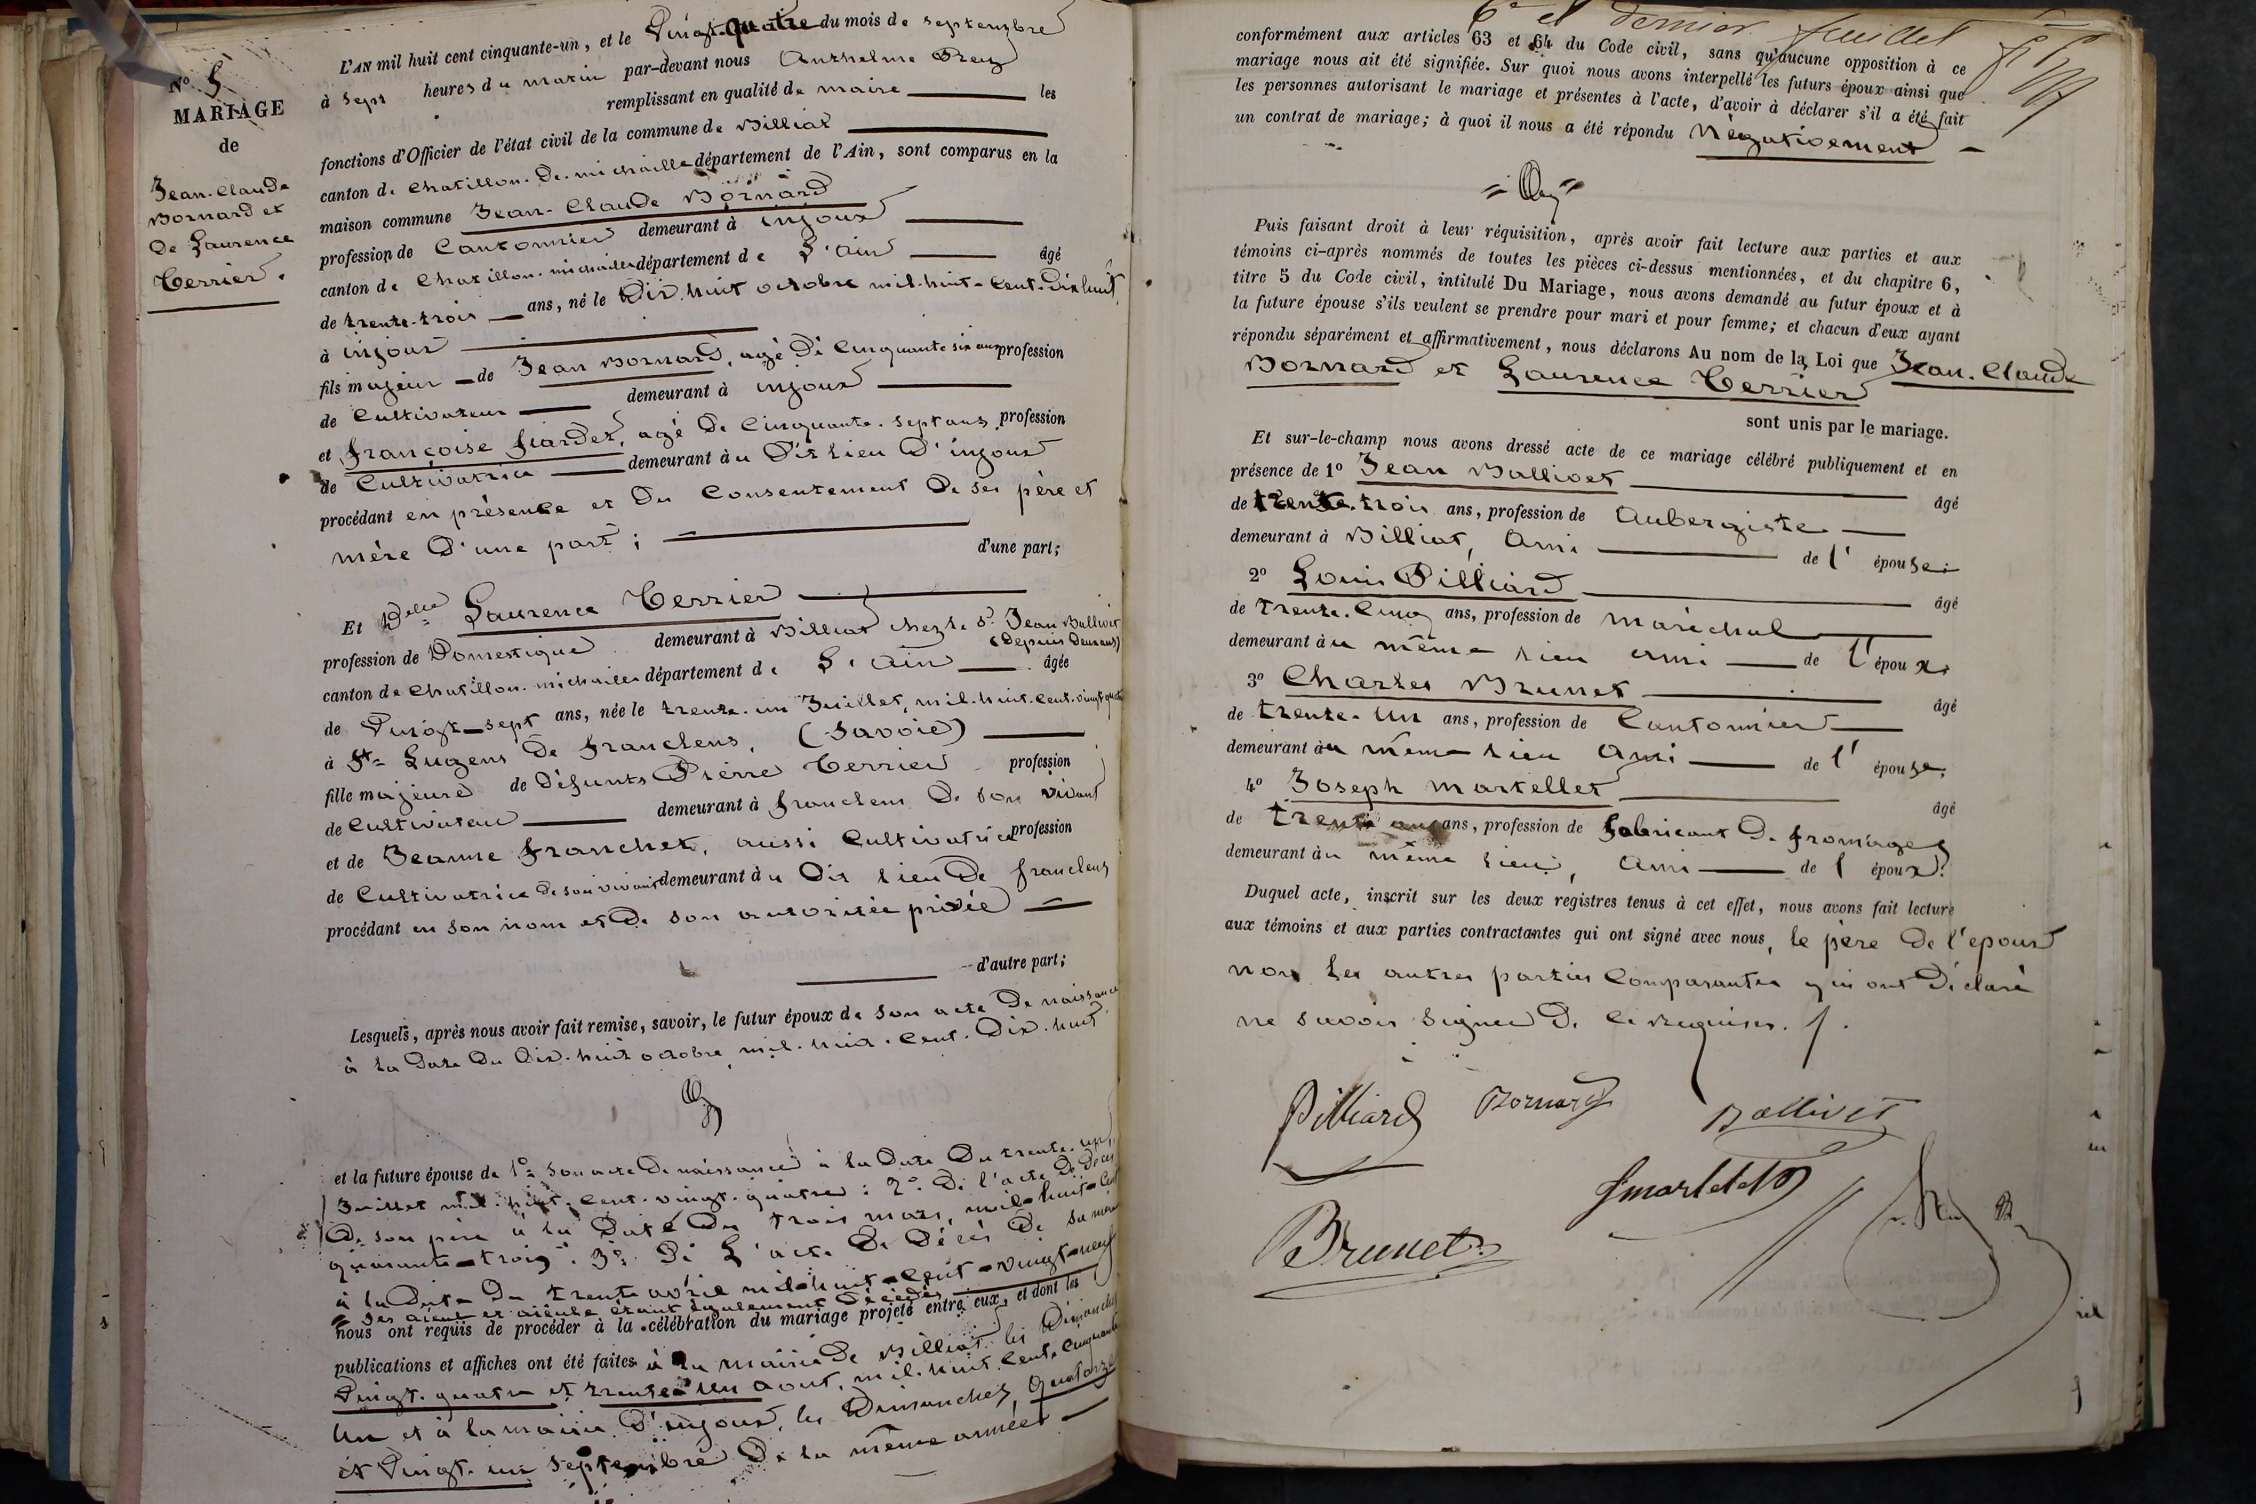 N° 5
MARIAGE
de
Jean-Claude
Bornard et
De Laurence
Terrier.
L'AN mil huit cent cinquante-un, et le Vingt-quatre du mois de septembre
à sept heures du matin par-devant nous Anthelme
remplissant en qualité de maire les
fonctions d'Officier de l'état civil de la commune de Billiat
canton de Chatillon-De-michaille département de l'Ain, sont comparus en la
maison commune Jean-Claude Bornard
profession de Cantonnier demeurant à injoux
canton de Chatillon-michaille département de L'ain âgé
de trente-trois ans, né le Dix-huit octobre mil-huit-cent-Dix huit
à injoux
fils majeur de Jean Bornard, agé De Cinquante six ans profession
de Cultivateur demeurant à injoux
et françoise fiardet, agé De Cinquante-sept ans, profession
de Cultivatrice demeurant à u Dit Lieu D'injoux
procédant en présence et Du Consentement De ses père et
mère D'une part ;
d'une part;
Et Delle Laurence Terrier
profession de Domestique demeurant à Billiat chez le Sr. Jean Ballivet
(Depuis Deux ans)
canton de Chatillon-michaille département de L'ain âgée
de Vingt-sept ans, née le trente-un Juillet, mil-huit-cent-vingt-quatre
à St= Lugens De franclens, (Savoie)
fille majeure de Défunts Pierre Terrier profession
de Cultivateur demeurant à franclens De son vivant
et de Jeanne franchet, aussi Cultivatrice profession
de Cultivatrice De son vivant demeurant à u Dit Lieu De franclens
procédant en son nom et De son autorisée privée
d'autre part;
Lesquels, après nous avoir fait remise, savoir, le futur époux de son acte De naissance
à la Date Du Dix-huit octobre, mil-huit-cent-Dix-huit
et la future épouse de 1°= son acte De naissance à la Date Du trente-un
Juillet mil-huit-cent-vingt-quatre : 2°= De l'acte De Décès
De son père à la Date Du trois mars, mil-huit-cent
quarante-trois : 3°= De L'acte De Décès De sa mère
à la Date Du trente avril mil-huit-cent-vingt-neuf
= ses aïeul et aïeule étant également Décédés
nous ont requis de procéder à la célébration du mariage projeté entre eux, et dont les
publications et affiches ont été faites à la mairie De Billiat les Dimanches
Vingt-quatre et trente-un aout, mil-huit-cent-cinquante
Un et à la mairie D'injoux, les Dimanches, quatorze
et Vingt-un septembre De la même année
6e et dernier feuillet
conformément aux articles 63 et 64 du Code civil, sans qu'aucune opposition à ce
mariage nous ait été signifiée. Sur quoi nous avons interpellé les futurs époux ainsi que
les personnes autorisant le mariage et présentes à l'acte, d'avoir à déclarer s'il a été fait
un contrat de mariage; à quoi il nous a été répondu Négativement
Puis faisant droit à leur réquisition, après avoir fait lecture aux parties et aux
témoins ci-après nommés de toutes les pièces ci-dessus mentionnées, et du chapitre 6,
titre 5 du Code civil, intitulé Du Mariage, nous avons demandé au futur époux et à
la future épouse s'ils veulent se prendre pour mari et pour femme; et chacun d'eux ayant
répondu séparément et affirmativement, nous déclarons Au nom de la Loi que Jean-Claude
Bornard et Laurence Terrier
sont unis par le mariage.
Et sur-le-champ nous avons dressé acte de ce mariage célébré publiquement et en
présence de 1° Jean Ballivet âgé
de trente-trois ans, profession de Aubergiste
demeurant à Billiat, Ami de l'épouse.
2° Louis Pilliard âgé
de trente-Cinq ans, profession de maréchal
demeurant à u même Lieu ami de l'époux.
3° Charles Brunet âgé
de trente-Un ans, profession de Cantonnier
demeurant à u même Lieu Ami de l'épouse.
4° Joseph martellet âgé
de trente ans, profession de fabricant De fromages
demeurant à u même Lieu, Ami de l'époux.
Duquel acte, inscrit sur les deux registres tenus à cet effet, nous avons fait lecture
aux témoins et aux parties contractantes qui ont signé avec nous, le père De l'epoux
non Les autres parties Comparantes qui ont Déclaré
ne savoir signer De ce requises.
Pilliard Bornard Ballivet
Jmartelet
Brunet